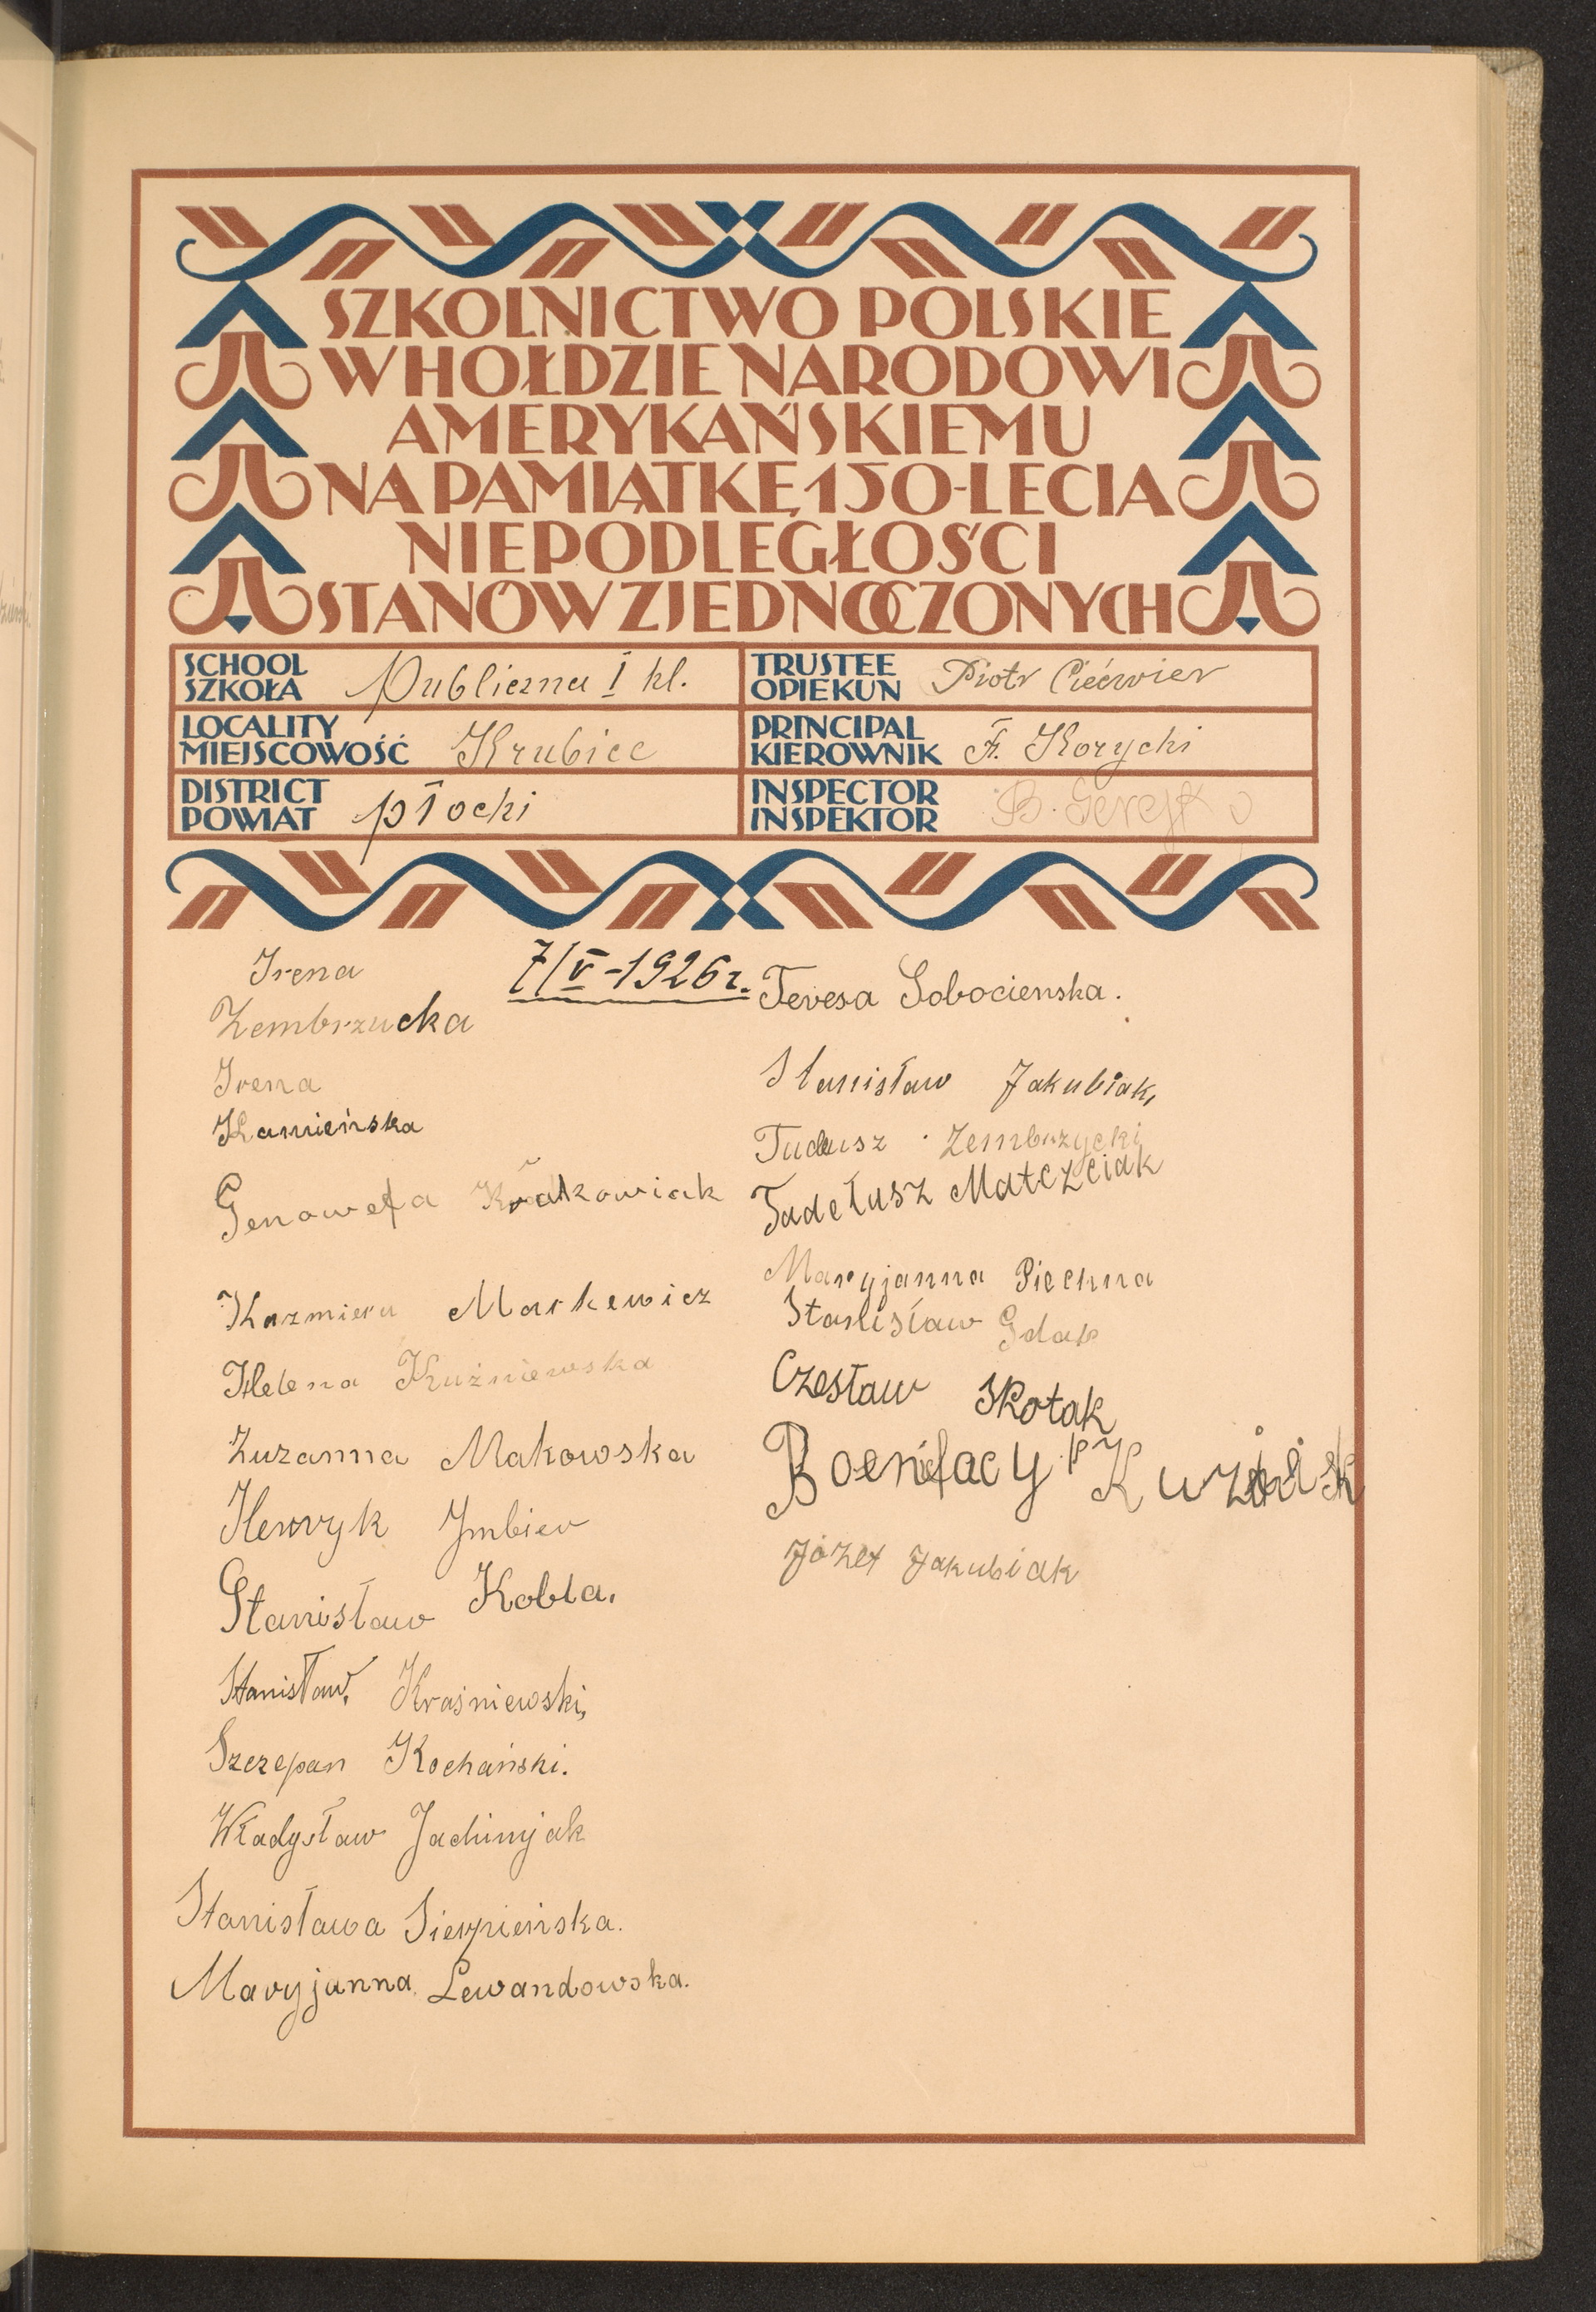 SZKOLNICTWO POLSKIE
W HOŁDZIE NARODOWI
AMERYKAŃSKIEMU
NA PAMIĄTKĘ 150-LECIA
NIEPODLEGŁOŚCI
STANÓW ZJEDNOCZONYCH
SCHOOL
SZKOŁA
Publiczna I kl.
TRUSTEE
OPIEKUN
Piotr Cićwier
LOCALITY
MIEJSCOWOŚĆ
Krubice
PRINCIPAL
KIEROWNIK
Fr. Korycki
DISTRICT
POWIAT
płocki
INSPECTOR
INSPEKTOR
B.
7/V-1926r.
Irena
Zembrzucka
Irena
Kamieńska
Genowefa Krakowiak
Kazmiera Markewicz
Helena Kuźniewska
Zuzanna Makowska
Henryk Imbier
Stanisław Kobla.
Stanisław, Kraśniewski,
Szczepan Kochański.
Władysław Jachimjak
Stanisława Sierpieńska.
Maryjanna Lewandowska.
Teresa Sobocienska.
Stanisław Jakubiak,
Tadeusz Zembrzycki
Tadełusz Matczciak
Maryjanna Piechna
Stanisław Gdak
Czesław Skotak
Boenifacy
Józef Jakubiak